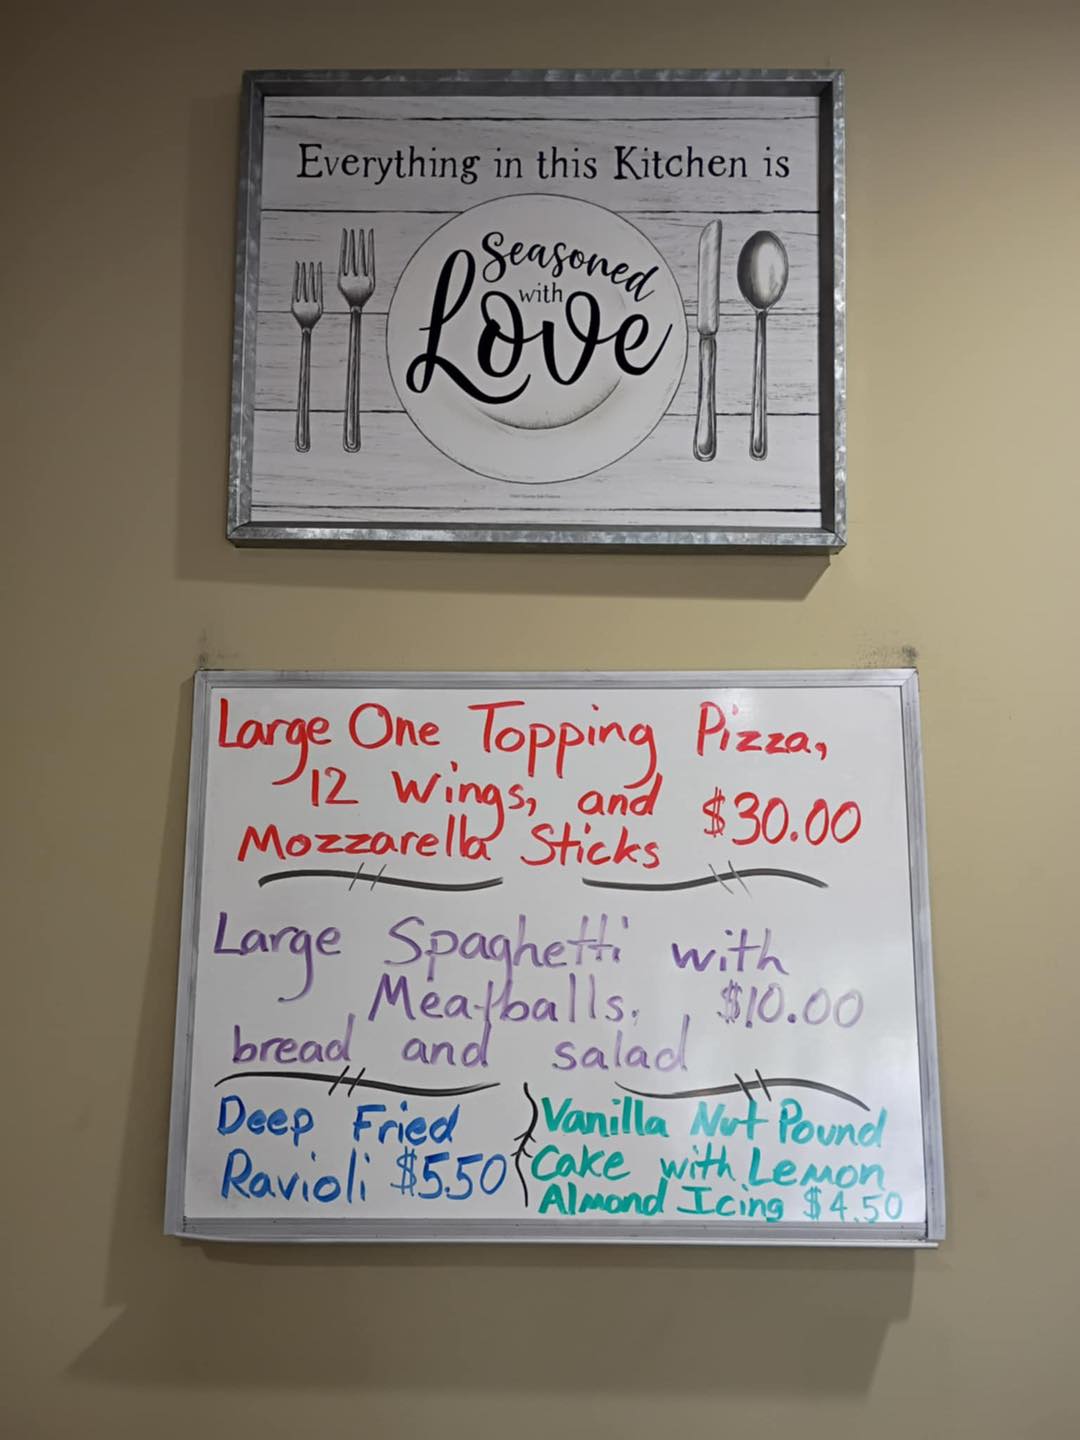 Everything in this Kitchen is
Seasoned
with
Love
Large One Topping Pizza,
12 Wings, and
Mozzarella Sticks $30.00
Large Spaghetti with
Meatballs, $10.00
bread and salad
Deep Fried
Ravioli $5.50
Vanilla Nut Pound
Cake with Lemon
Almond Icing $4.50